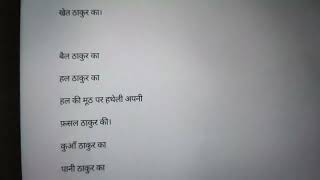 खेत ठाकुर का।
बैल ठाकुर का
हल ठाकुर का
हल की मूठ पर हथेली अपनी
फ़सल ठाकुर की।
कुआँ ठाकुर का
पानी ठाकुर का